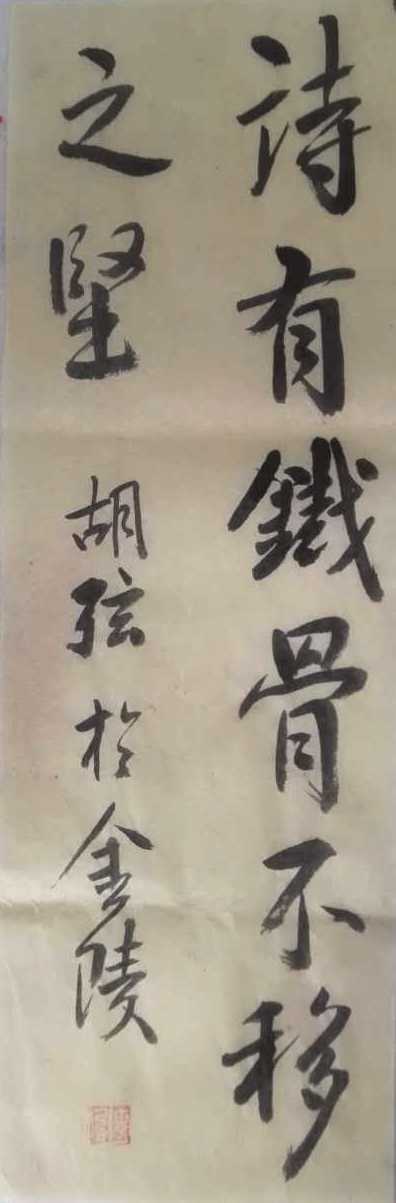 詩有鐵骨不移
之堅 胡弦於金陵